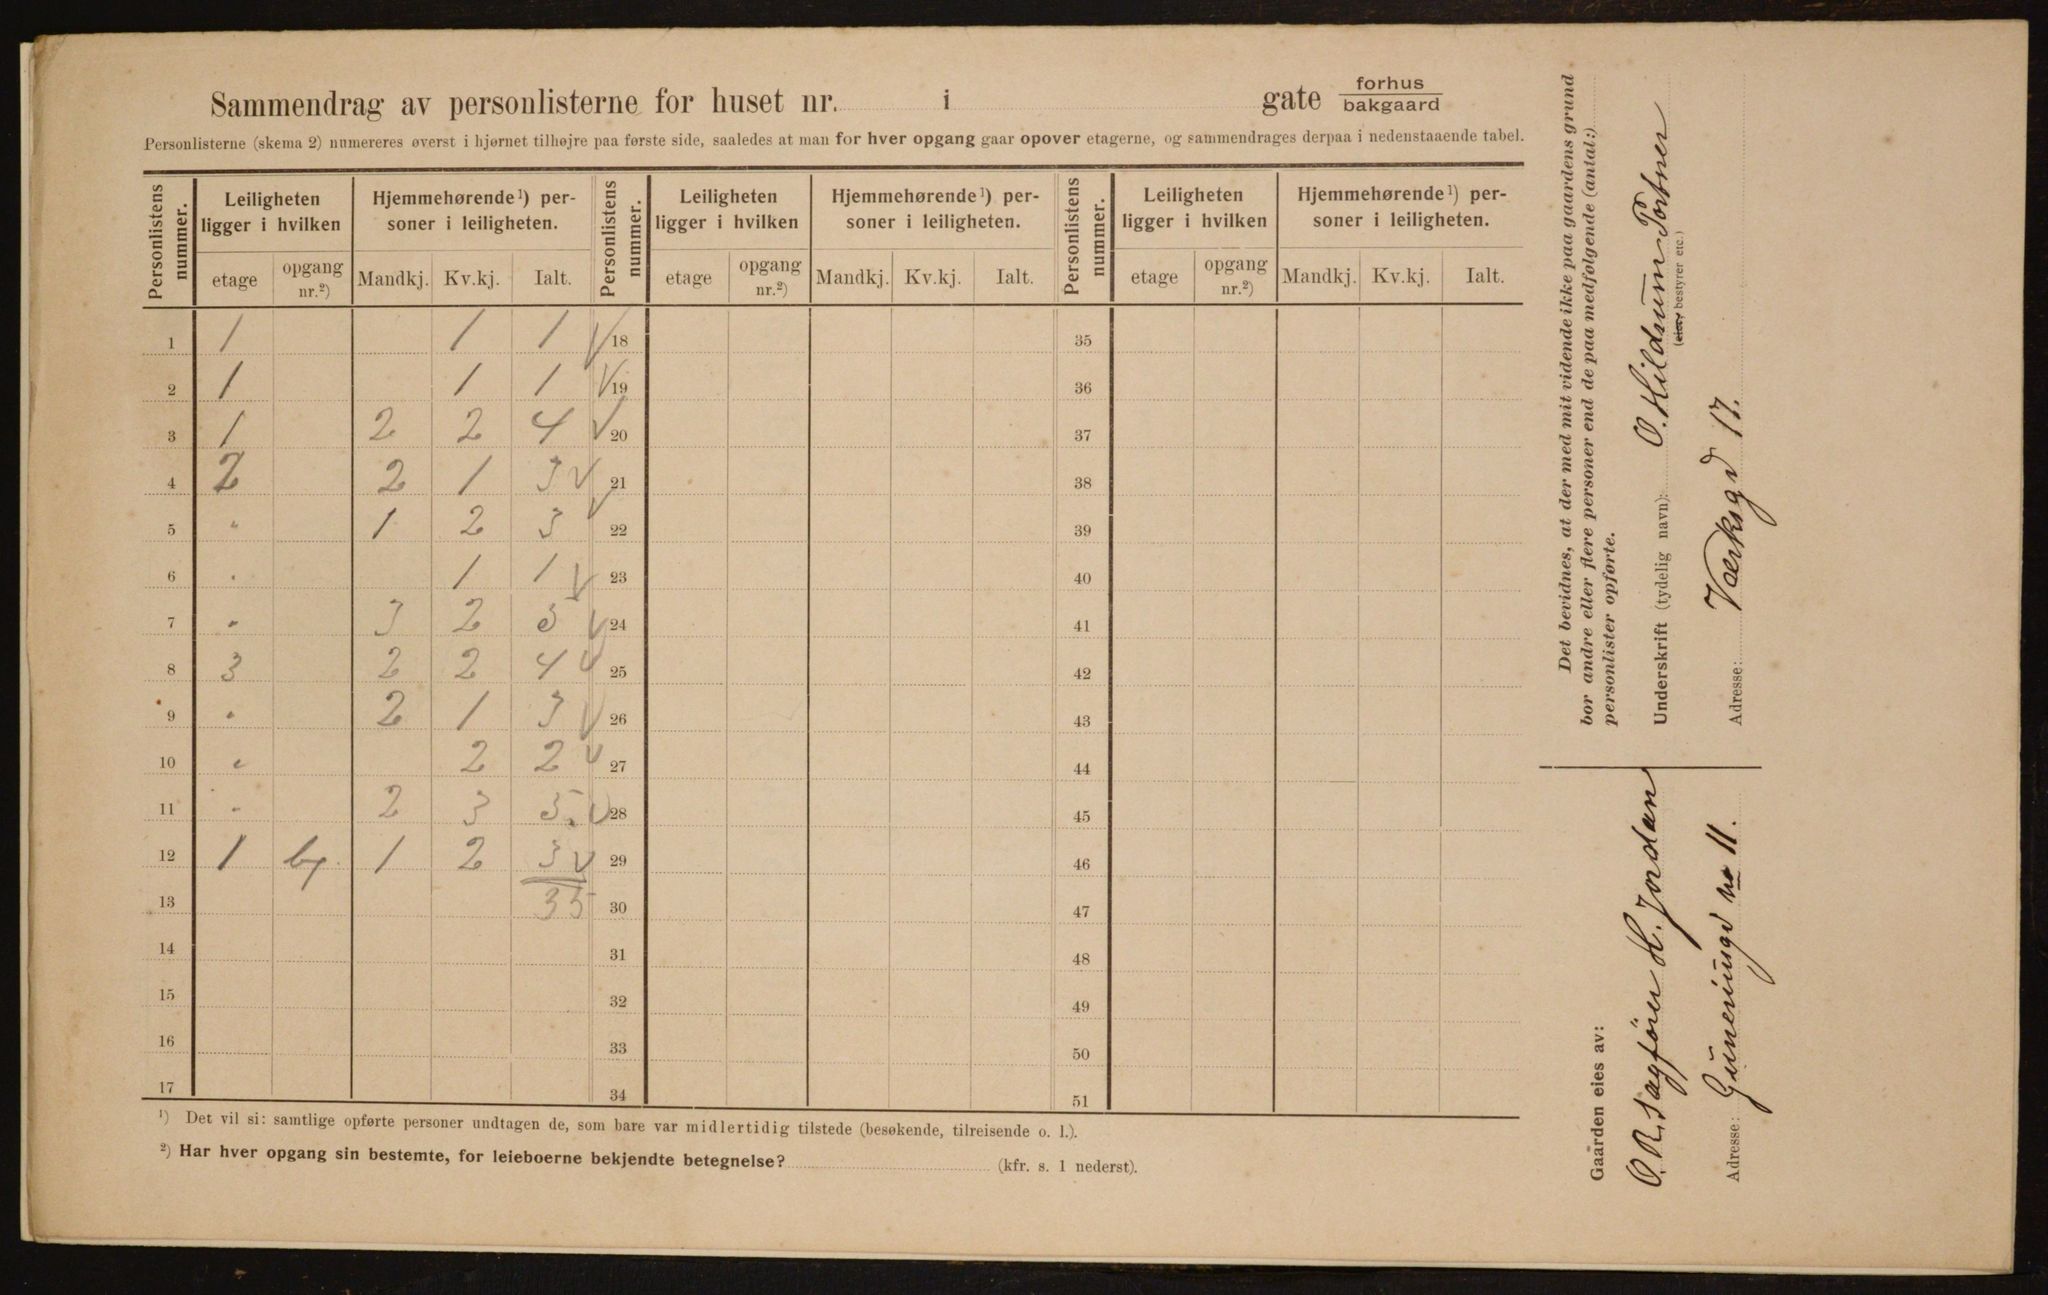 Sammendrag av personlisterne for huset nr. i gate forhus bakgaard
Personlisterne (skema 2) numereres øverst i hjørnet tilhøjre paa første side, saaledes at man for hver opgang gaar opover etagerne, og sammendrages derpaa i nedenstaaende tabel.
Personlistens nummer. Leiligheten ligger i hvilken Hjemmehørende ¹) personer i leiligheten. Personlistens nummer. Leiligheten ligger i hvilken Hjemmehørende ¹) personer i leiligheten. Personlistens nummer. Leiligheten ligger i hvilken Hjemmehørende ¹) personer i leiligheten.
etage opgang nr.²) Mandkj. Kv.kj. Ialt. etage opgang nr.²) Mandkj. Kv.kj. Ialt. etage opgang nr.²) Mandkj. Kv.kj. Ialt.
1 1 1 1 18 35
2 1 1 1 19 36
3 1 2 2 4 20 37
4 2 2 1 3 21 38
5 " 1 2 3 22 39
6 " 1 1 23 40
7 " 3 2 5 24 41
8 3 2 2 4 25 42
9 " 2 1 3 26 43
10 " 2 2 27 44
11 " 2 3 5 28 45
12 1 bg. 1 2 3 29 46
13 35 30 47
14 31 48
15 32 49
16 33 50
17 34 51
¹) Det vil si: samtlige opførte personer undtagen de, som bare var midlertidig tilstede (besøkende, tilreisende o. l.).
²) Har hver opgang sin bestemte, for leieboerne bekjendte betegnelse? (kfr. s. 1 nederst).
Det bevidnes, at der med mit vidende ikke paa gaardens grund
bor andre eller flere personer end de paa medfølgende (antal:)
personlister opførte.
Underskrift (tydelig navn): O. Hildrum Portner
(eier, bestyrer etc.)
Adresse: Værksgd 17.
Gaarden eies av:
O.R. sagfører H. Jordan
Adresse: Guneriusgd no 11.